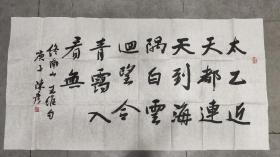 太乙近
天都連
天到海
隅白雲
迴望合
青靄入
看無
终南山 王維句
庚子